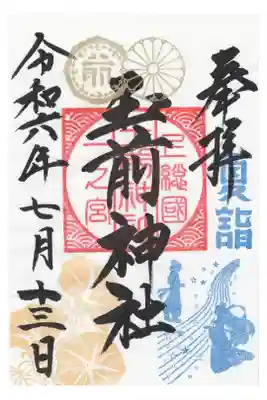 奉拝
夏詣
上総國
一之宮
玉前神社
令和六年七月十三日